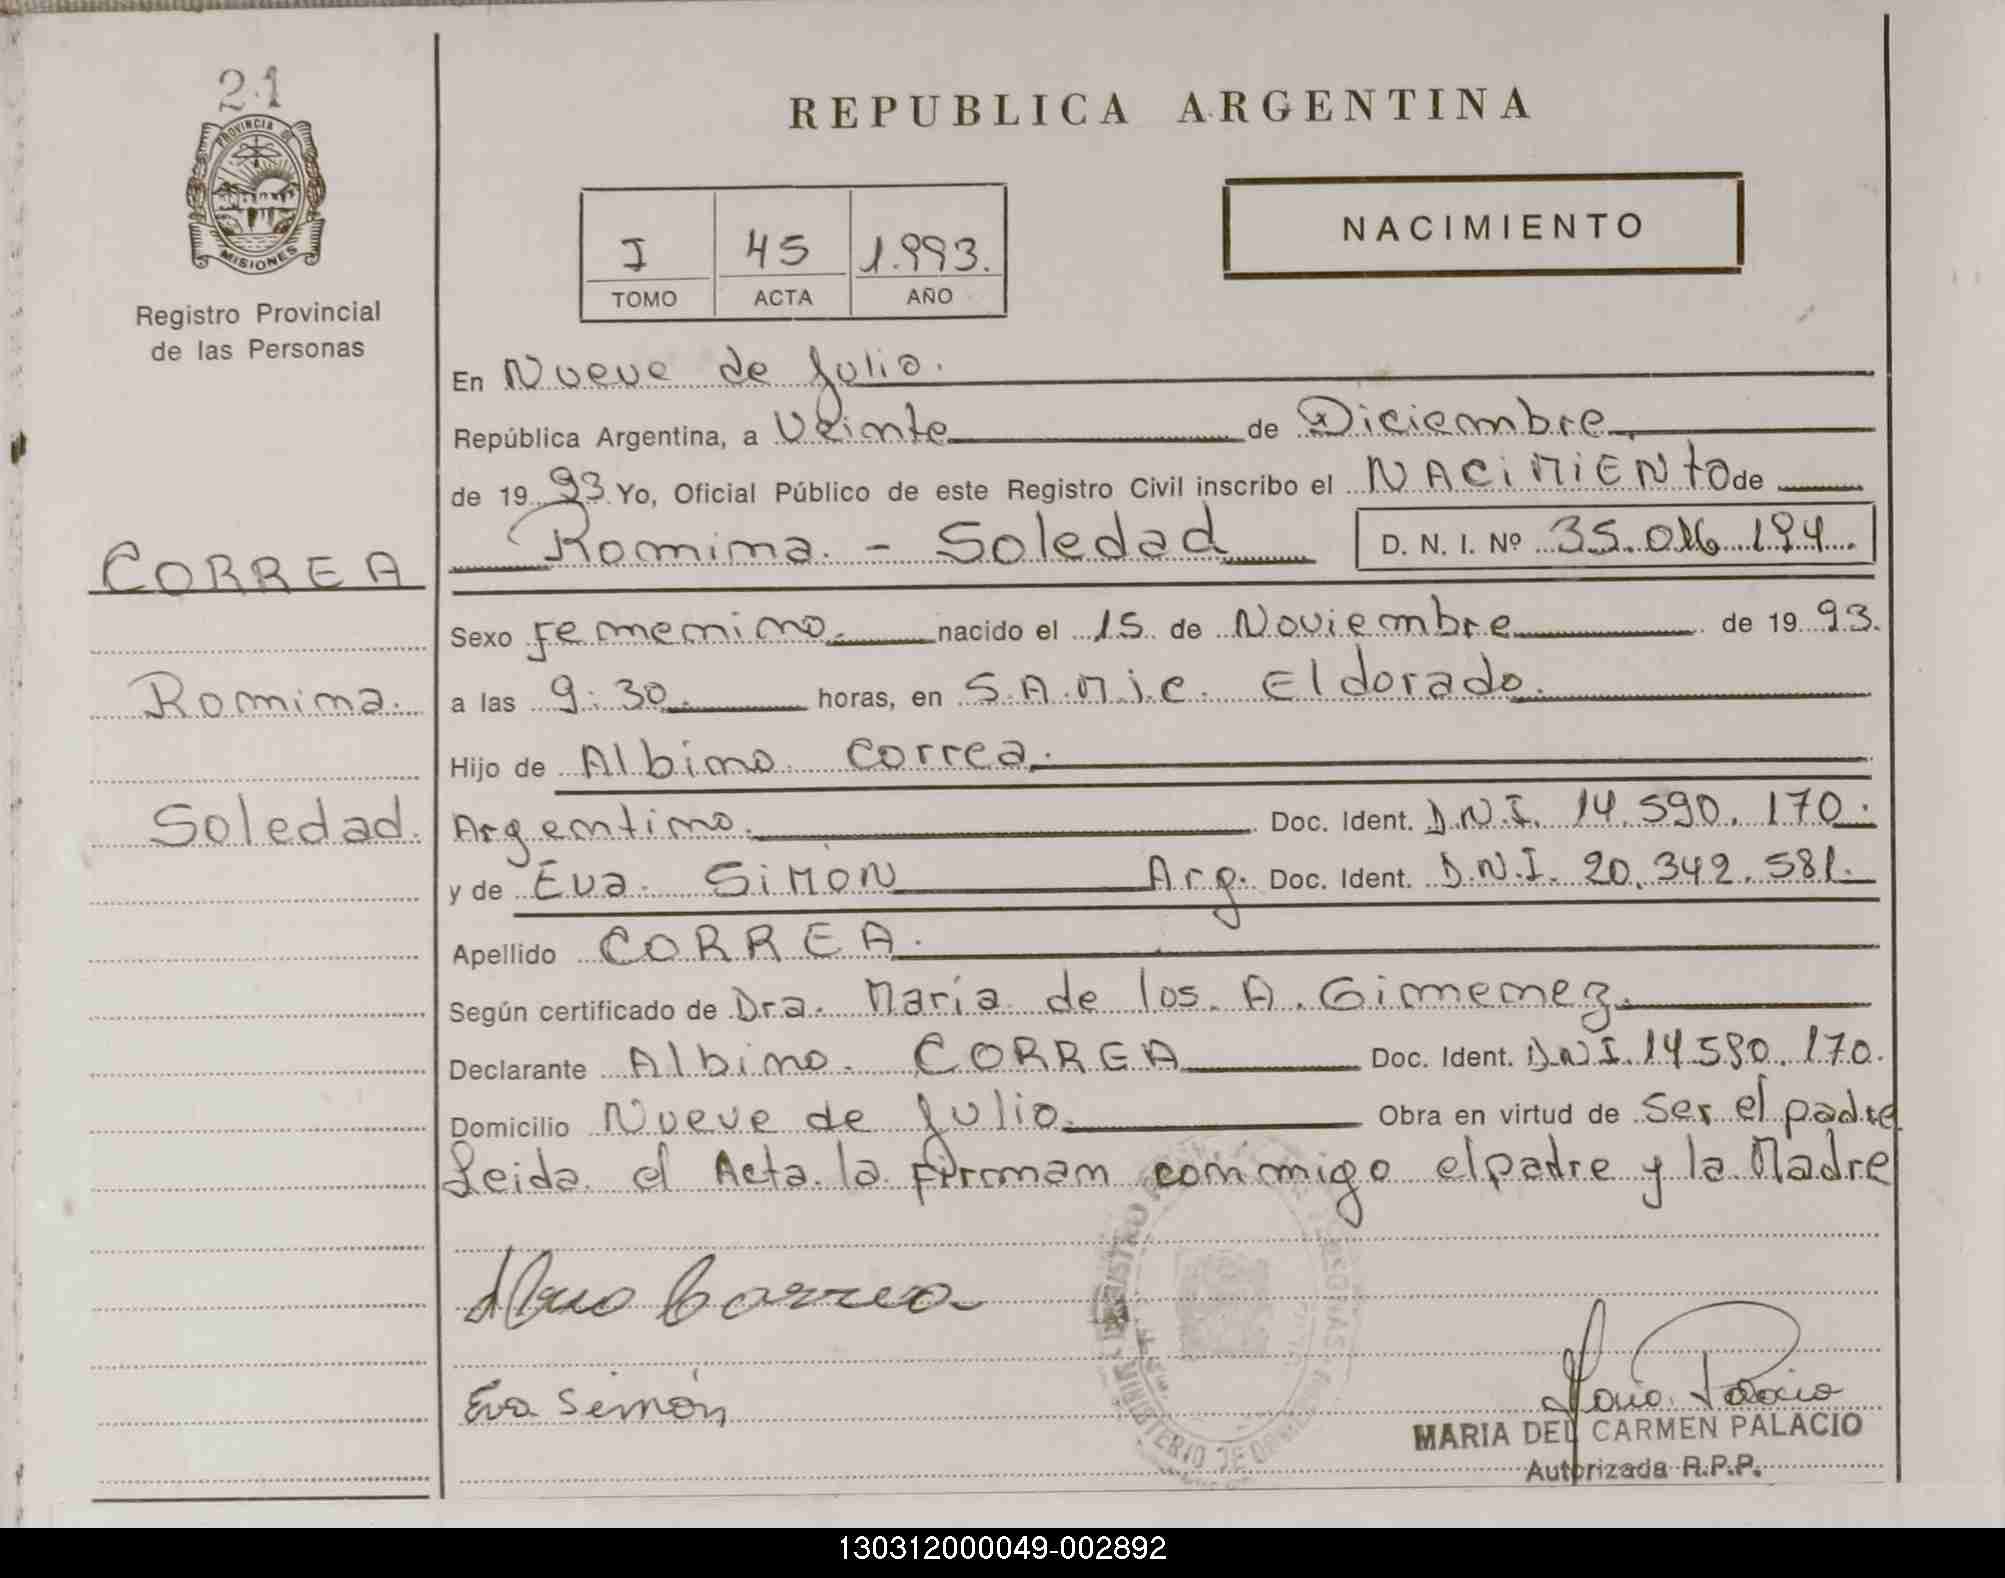 21
PROVINCIA DE
MISIONES
Registro Provincial
de las Personas
CORREA
Romina.
Soledad.
REPUBLICA ARGENTINA
NACIMIENTO
I 45 1.993.
TOMO ACTA AÑO
En Nueve de Julio.
República Argentina, a Veinte de Diciembre
de 1993 Yo, Oficial Público de este Registro Civil inscribo el NACiMiENto de
Romina. - Soledad D. N. I. Nº 35.016.194.
Sexo Femenino. nacido el 15 de Noviembre de 1993.
a las 9:30 horas, en S.A.M.i.c. Eldorado.
Hijo de Albino Correa.
Argentino. Doc. Ident. D.N.I. 14.590.170.
y de Eva. SiMON Arg. Doc. Ident. D.N.I. 20.342.581.
Apellido CORREA.
Según certificado de Dra. María de los A. Gimenez.
Declarante Albino. CORREA Doc. Ident. D.N.I. 14.590.170.
Domicilio Nueve de Julio. Obra en virtud de Ser el padre
Leida el Acta la firman conmigo el padre y la Madre
Correa
Eva Simón
Maria Palacio
MARIA DEL CARMEN PALACIO
Autorizada R.P.P.
130312000049-002892